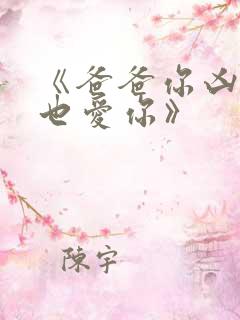 《爸爸你凶
也愛你》
陳宇